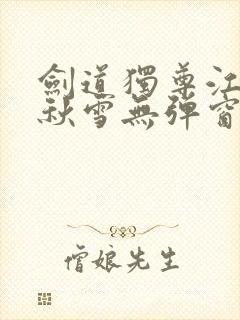 劍道獨尊江
秋雪無彈窗
僧娘先生